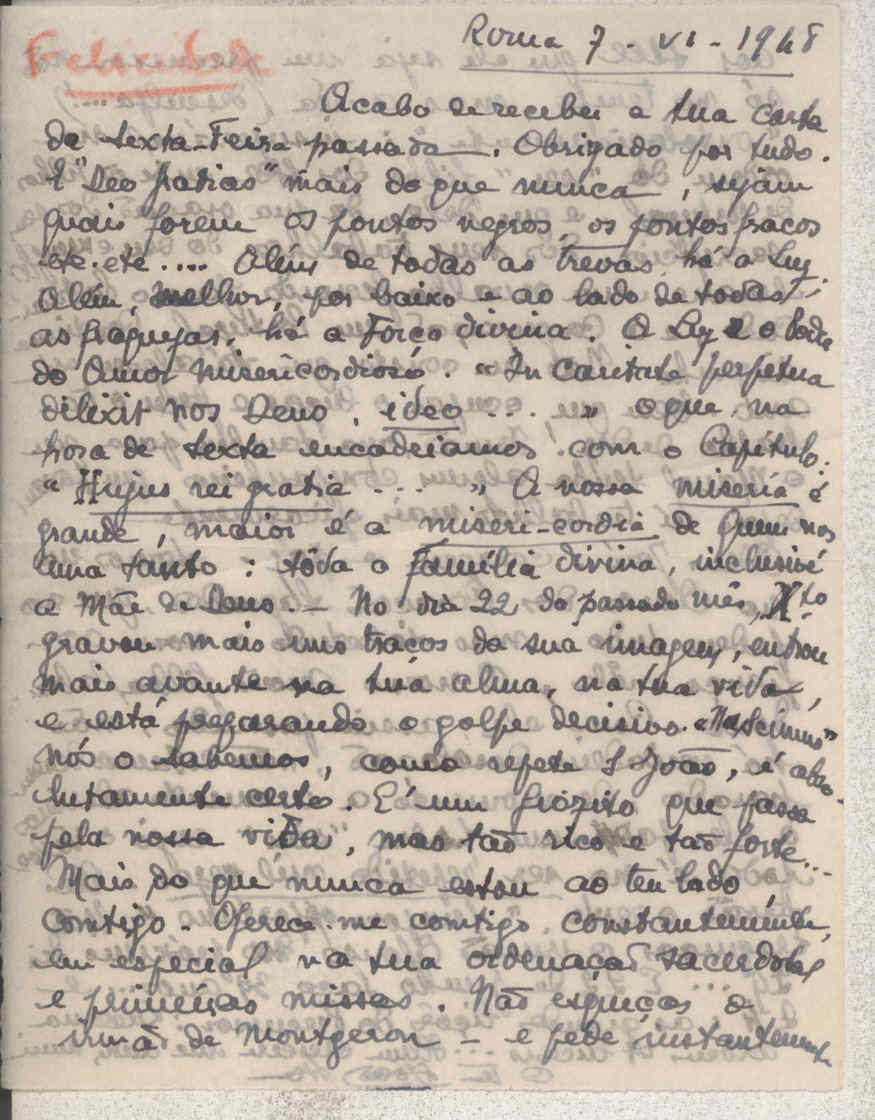 Roma 7 - VI - 1948
Acabo de receber a tua carta
de sexta-feira passada. Obrigado por tudo.
E "Deo gratias" mais do que nunca, sejam
quais forem os pontos negros, os pontos fracos
etc. etc .... Além de todas as trevas há a Luz.
Além, melhor, por baixo e ao lado de todas
as fraquezas, há a Força divina. A Luz e o Poder
do Amor misericordioso. "In caritate perpetua
dilexit nos Deus, ideo ... " o que na
hora de sexta encadeiamos com o Capítulo:
"Hujus rei gratia ... " A nossa miseria é
grande, maior é a miseri-cordia de Quem nos
ama tanto: tôda a Família divina, inclusivé
a Mãe de Deus. - No dia 22 do passado mês, Xto
gravou mais uns traços da sua imagem, entrou
mais avante na tua alma, na tua vida,
e está preparando o golpe decisivo. "Nos scimus"
nós o sabemos, como repete S João, é abso-
lutamente certo. É um friozito que passa
pela nossa vida, mas tão rico e tão forte...
Mais do que nunca estou ao teu lado
comtigo. Oferece-me comtigo constantemente,
em especial na tua ordenação sacerdotal
e primeiras missas. Não esqueças a
irmã de Montgeron - e pede instantemente